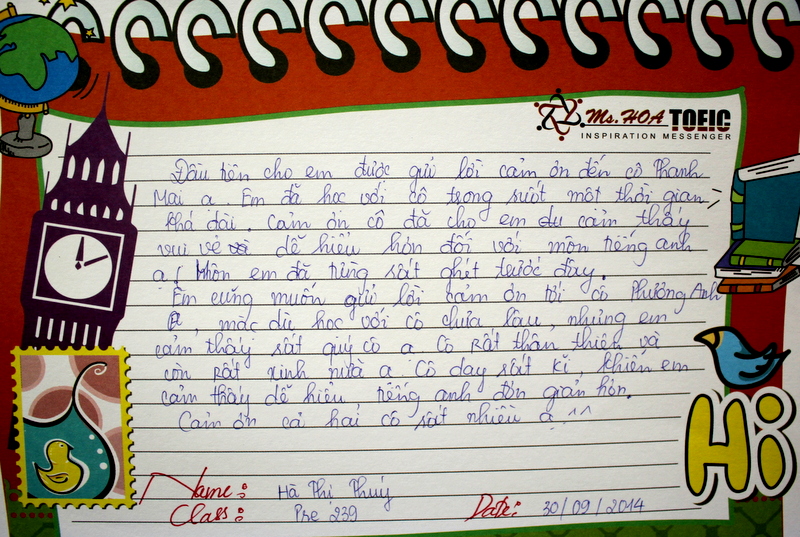 Ms. HOA TOEIC
INSPIRATION MESSENGER
Đầu tiên cho em được gửi lời cảm ơn đến cô Thanh
Mai ạ. Em đã học với cô trong suốt một thời gian
khá dài. Cảm ơn cô đã cho em cảm thấy
vui vẻ dễ hiểu hơn đối với môn tiếng anh
ạ! Môn em đã từng rất ghét trước đây.
Em cũng muốn gửi lời cảm ơn tới cô Phương Anh
, mặc dù học với cô chưa lâu, nhưng em
cảm thấy rất quý cô ạ Cô rất thân thiện và
còn rất xinh nữa ạ. Cô dạy rất kĩ, khiến em
cảm thấy dễ hiểu tiếng anh đơn giản hơn.
Cảm ơn cả hai cô rất nhiều ạ ^^
Hi
Name: Hà Thị Thuý
Class: Pre 239 Date: 30/09/2014